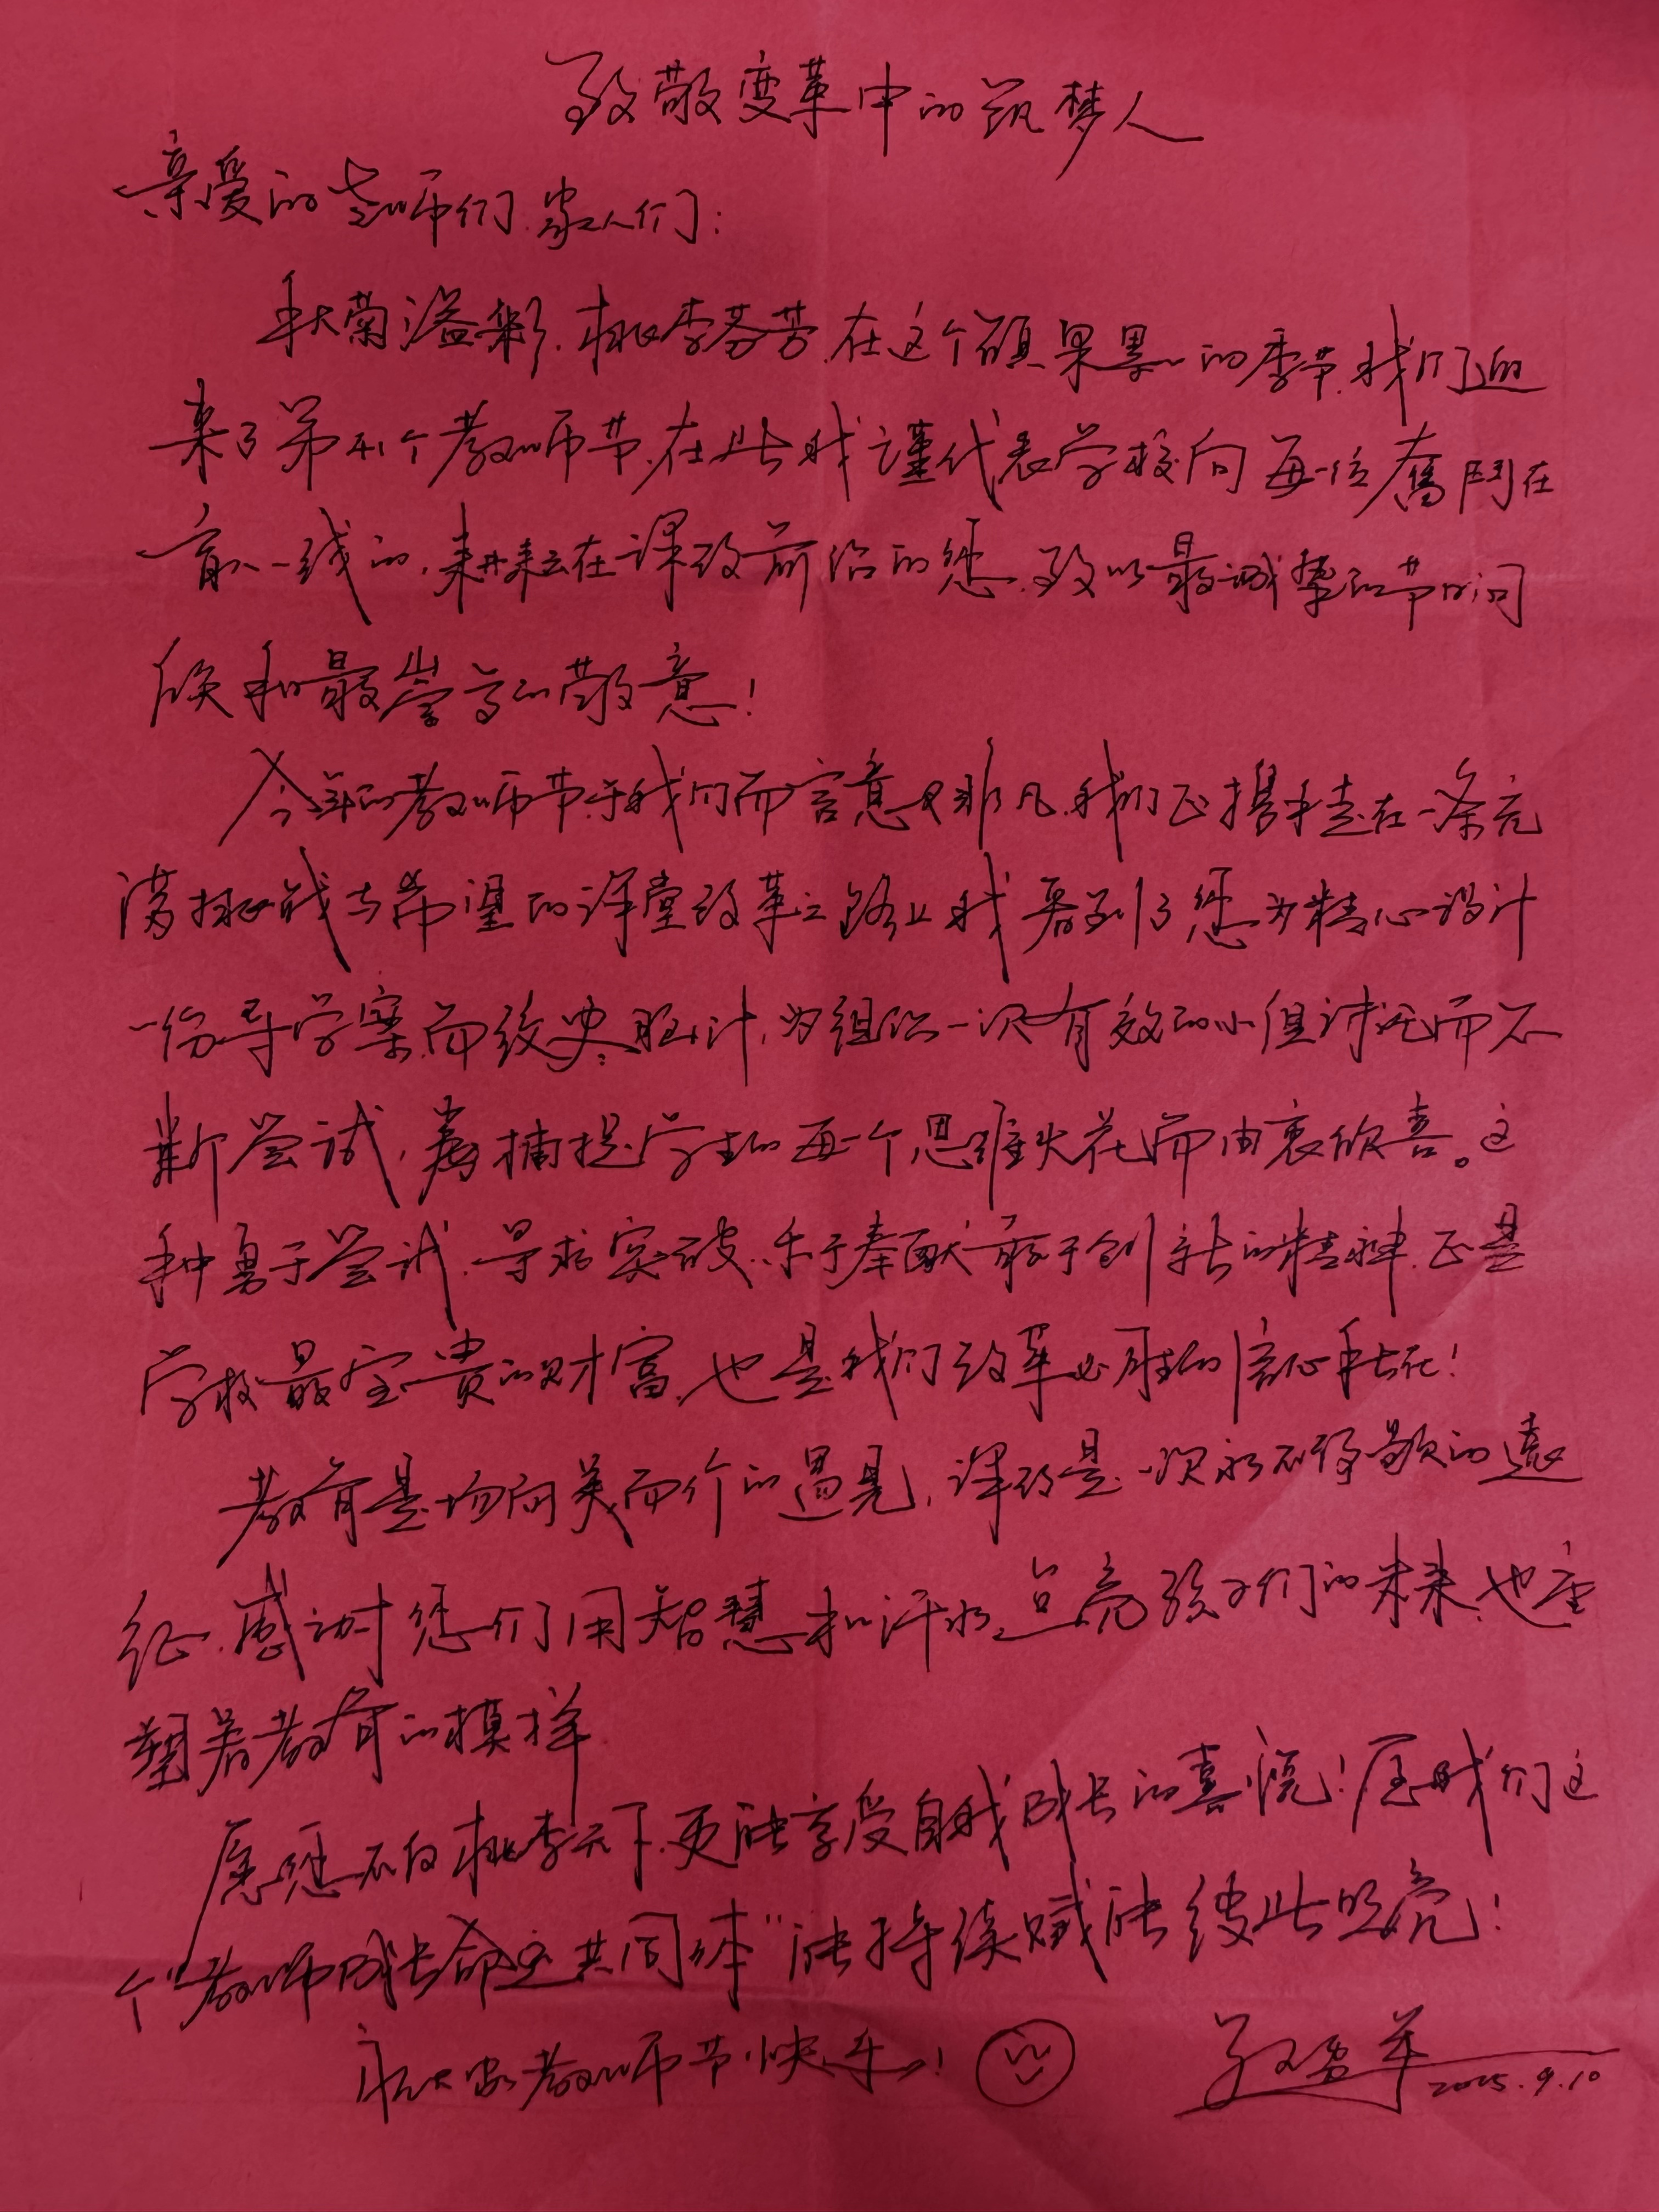 致敬变革中的筑梦人
亲爱的老师们.家人们:
秋菊溢彩.桃李芬芳.在这个硕果累累的季节.我们迎
来了第41个教师节.在此我谨代表学校向每一位奮鬥在
育人一线的,耕耘在课改前沿的您.致以最诚挚的节日问
候和最崇高的敬意!
今年的教师节.于我们而言意义非凡.我们正携手走在一条充
满挑战与希望的课堂改革之路上我看到了您为精心设计
一份导学案.而绞尽脑汁,为组织一次有效的小组讨论而不
断尝试,為捕捉学生的每一个思维火花而由衷欣喜。这
种勇于尝试.寻求突破.乐于奉献敢于创新的精神.正是
学校最宝贵的财富.也是我们改革必胜的信心所在!
教育是场向美而行的遇见,课改是一次永不停歇的远
征.感谢您们用智慧和汗水点亮孩子们的未来.也重
塑着教育的模样
愿您不仅桃李天下.更能享受自我成长的喜悦!愿我们这
个"教师成长命运共同体"能持续赋能彼此照亮!
祝大家教师节快乐!
2025.9.10